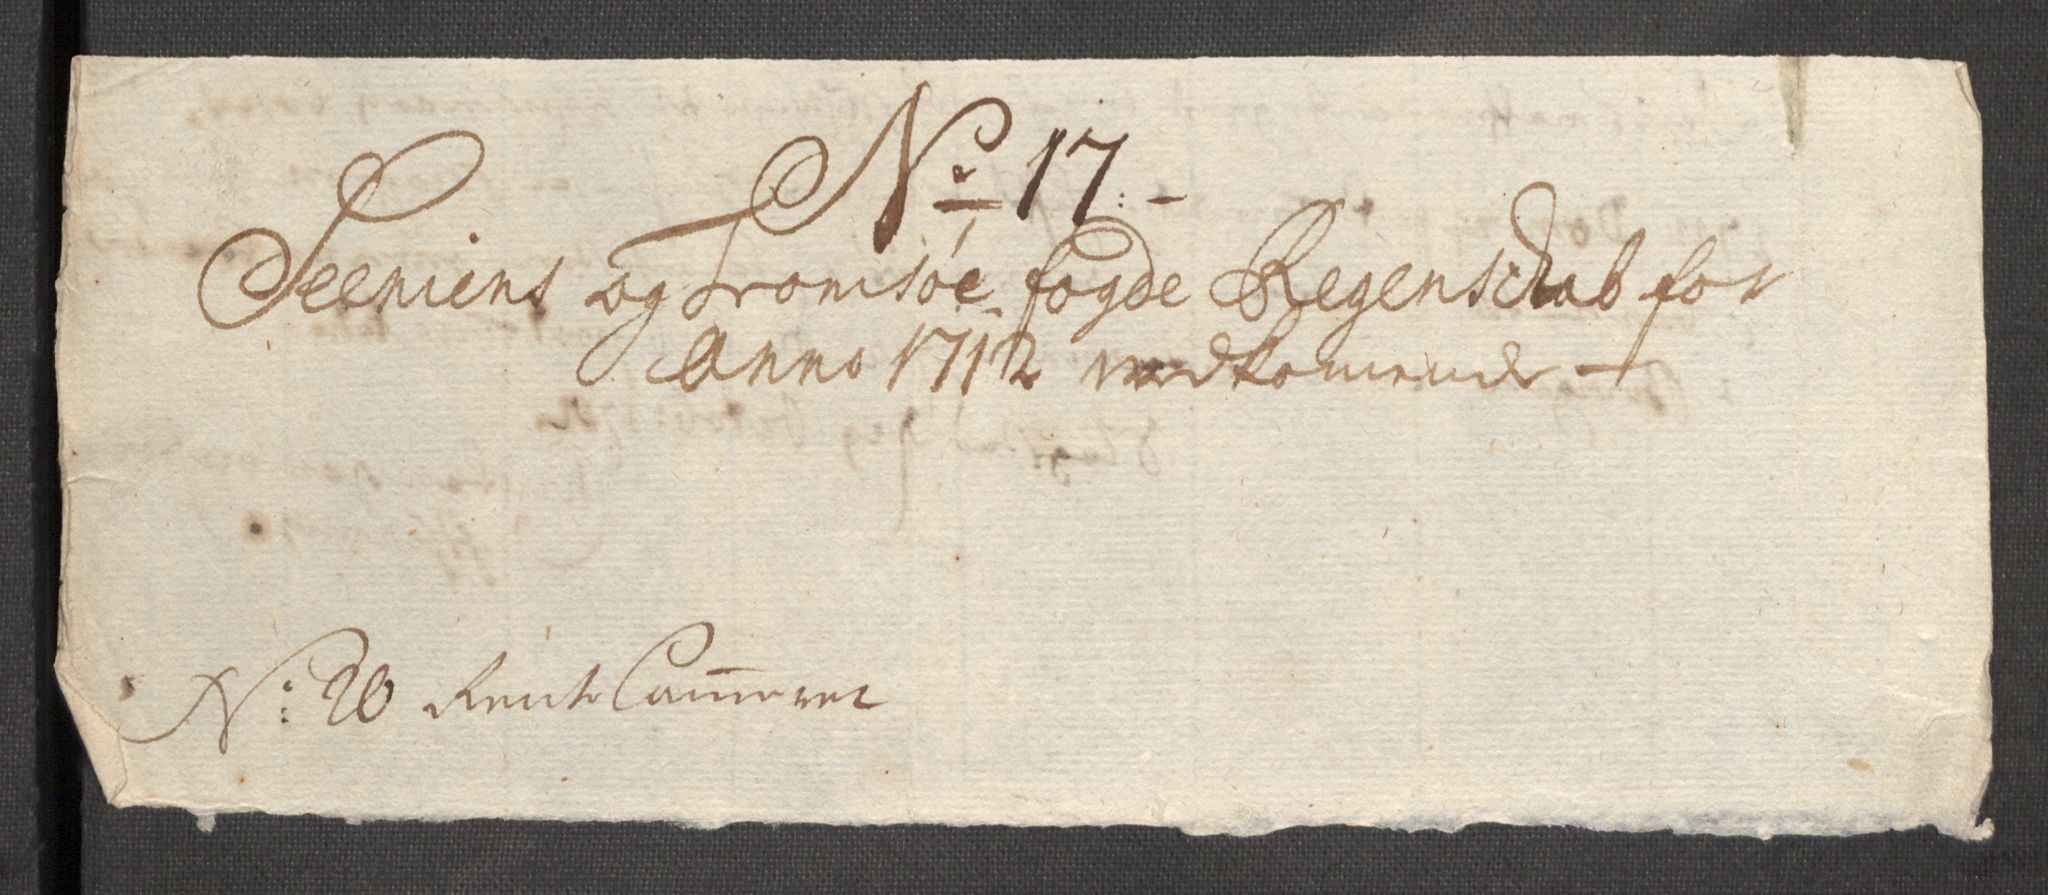 No 17:-
Seeniens og Tromsøe fogde Regenskab for
Anno 1712 vedkomende -
No: 20 Rente Cammeret